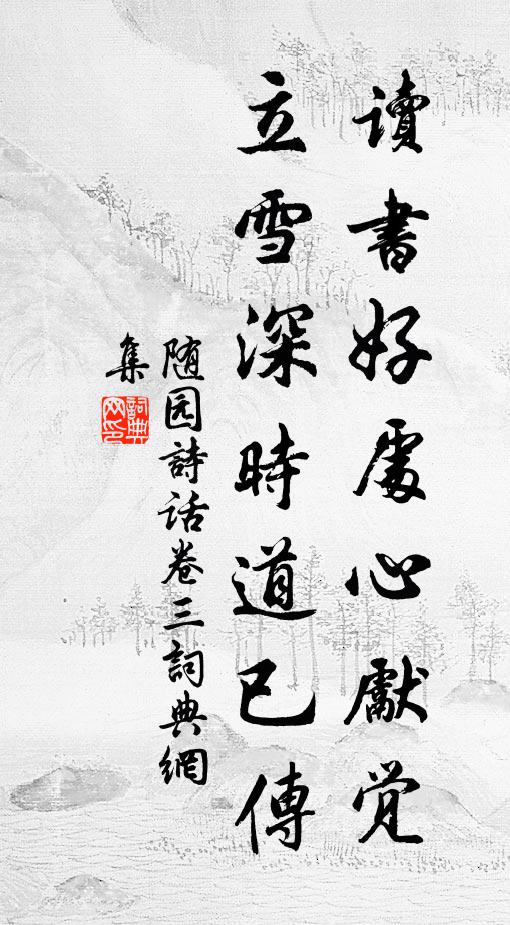 讀書好處心獻觉
立雪深時道已傳
随园詩话卷三詞典網
集
詞典
网印